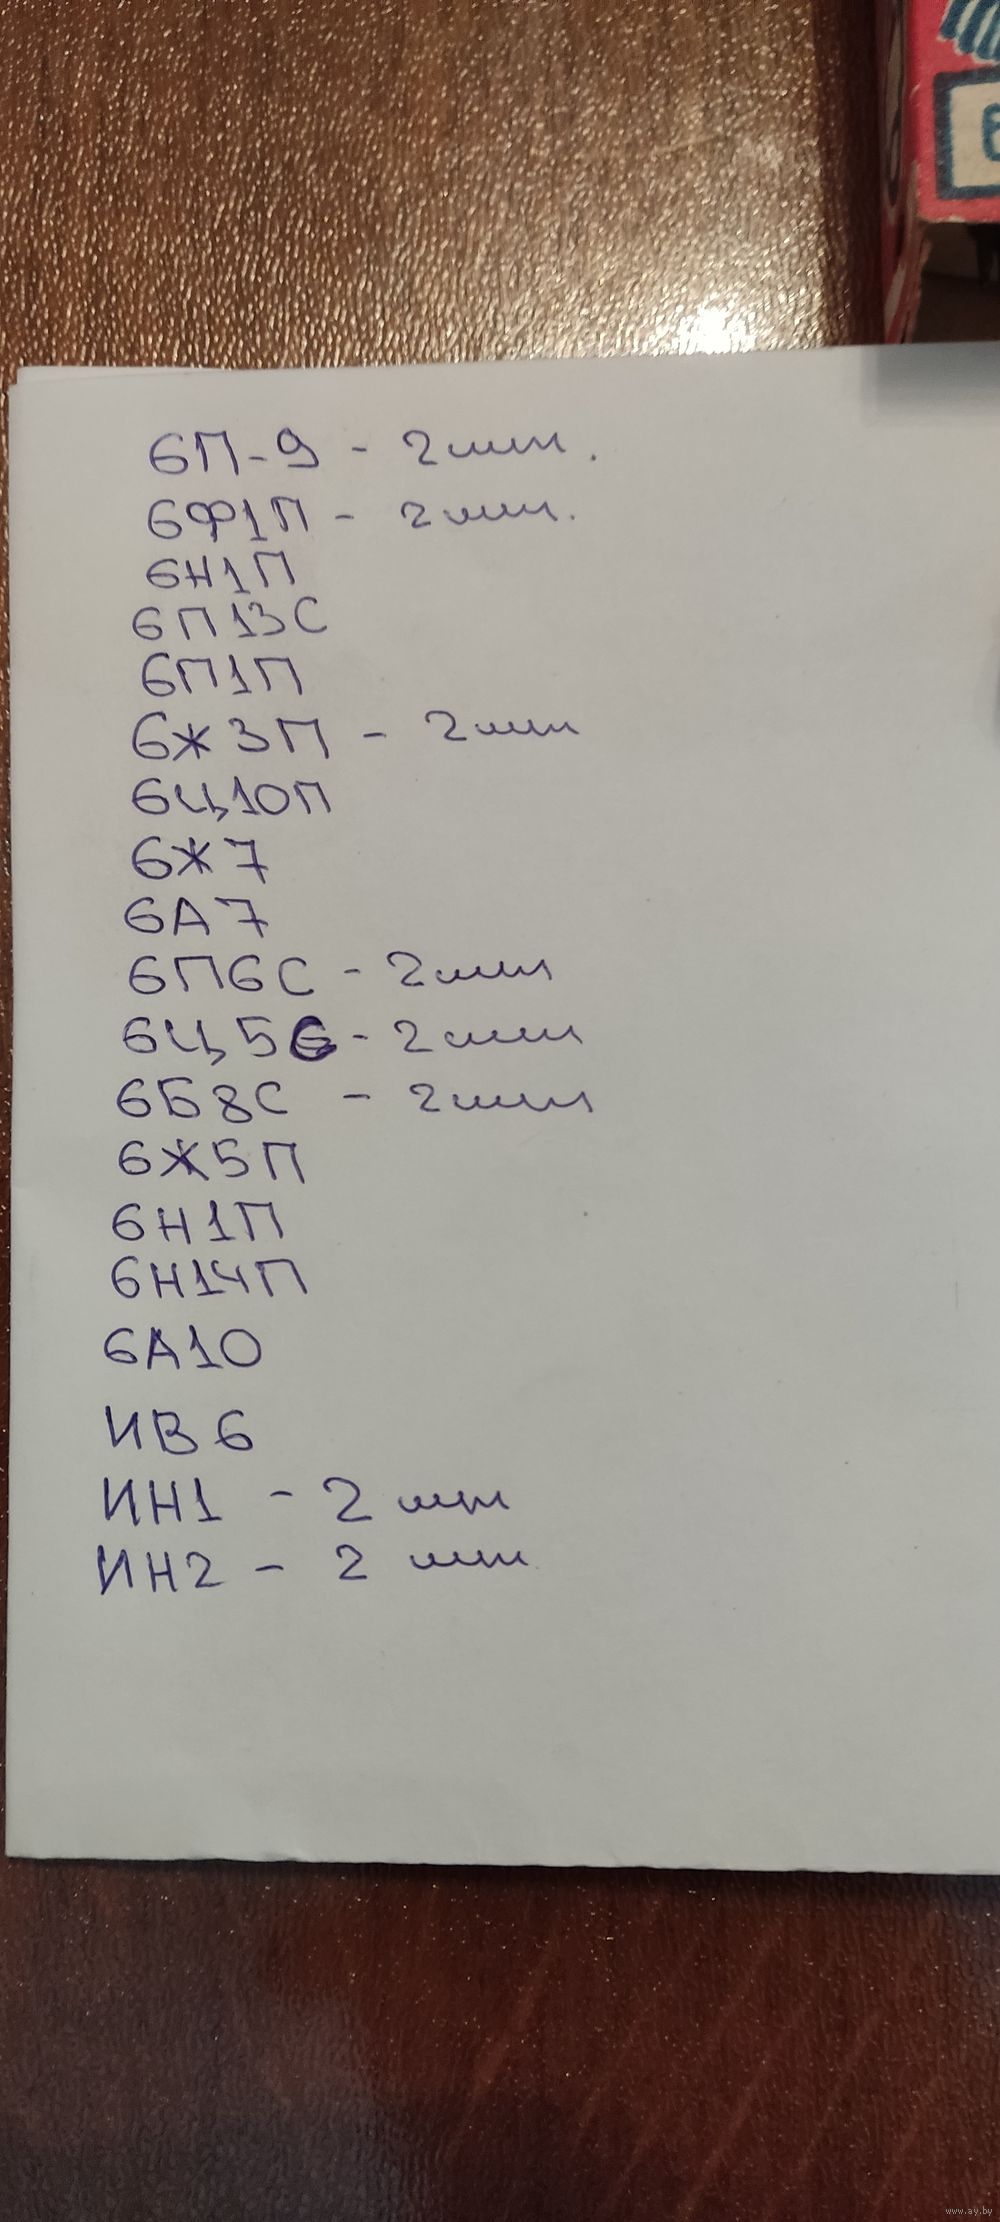 6
6П-9 - 2 шт.
6Ф1П - 2 шт.
6Н1П
6П13С
6П1П
6Ж3П - 2 шт
6Ц10П
6Ж7
6А7
6П6С - 2 шт
6Ц5С - 2 шт
6Б8С - 2 шт
6Ж5П
6Н1П
6Н14П
6А10
ИВ6
ИН1 - 2 шт
ИН2 - 2 шт
www.ay.by